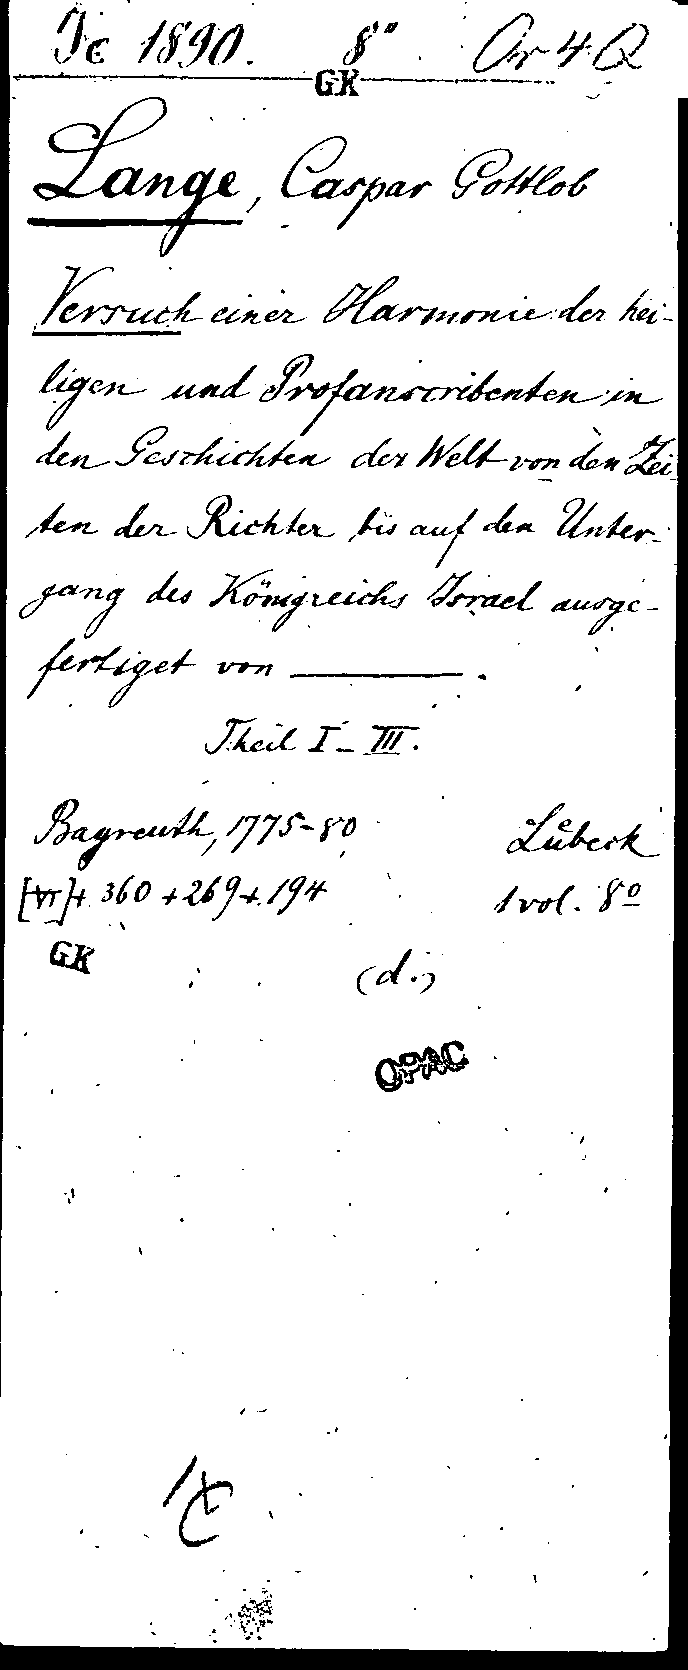 Jc 1890. 8° Or 4 Q
GK
Lange, Caspar Gottlob
Versuch einer Harmonie der hei-
ligen und Profanscribenten in
den Geschichten der Welt von den Zei
ten der Richter bis auf den Unter-
gang des Königreichs Israel ausge-
fertiget von ———.
Theil I–III.
Bayreuth, 1775–80 Lübeck
[VI]+ 360 +269+ 194 1 vol. 8°
GK
(d.)
OPAC